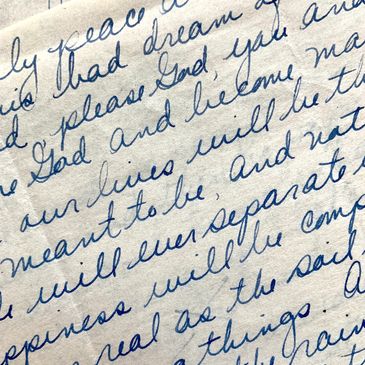 ly peace
his bad dream
d, please God, you and
e God and become ma
our lives will be th
meant to be, and not
e will ever separate
ppiness will be comp
real as the soil
things. A
the rain